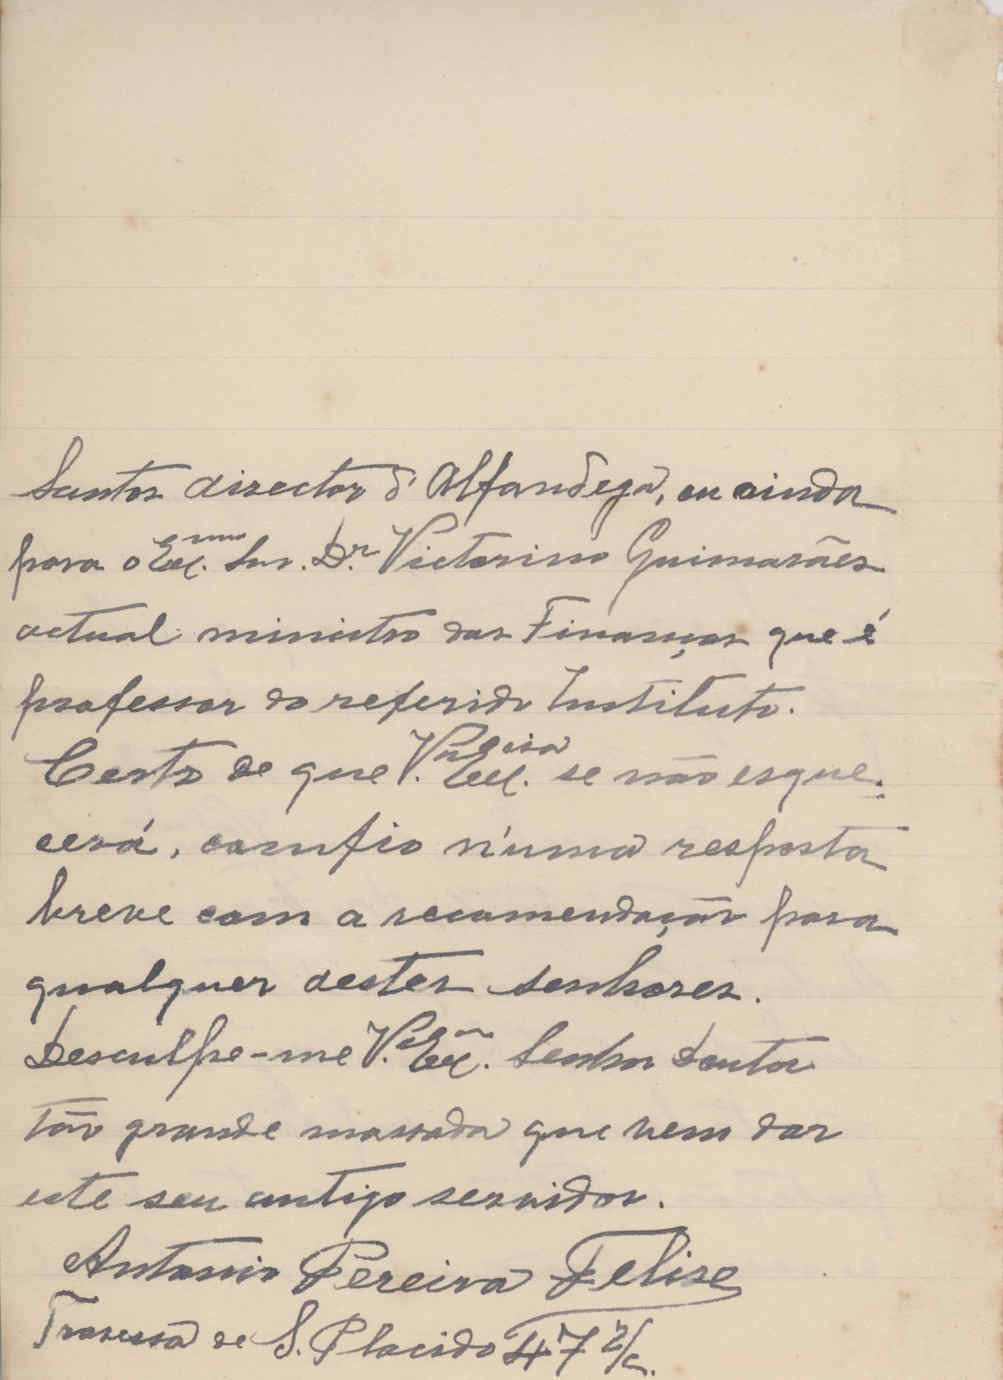 Santos director d'Alfandega, ou ainda
para o Exc.mo Snr. Dr. Victorino Guimarães
actual ministro das Finanças que é
professor do referido Instituto.
Certo de que V. Exc.cia se não esque-
cerá, comfio n'uma resposta
breve com a recomendação para
qualquer destes senhores.
Desculpe-me V. Exc.a Senhor Doutor
tão grande massada que vem dar
este seu antigo servidor.
Antonio Pereira Felise
Travessa de S. Placido 47 r/c.